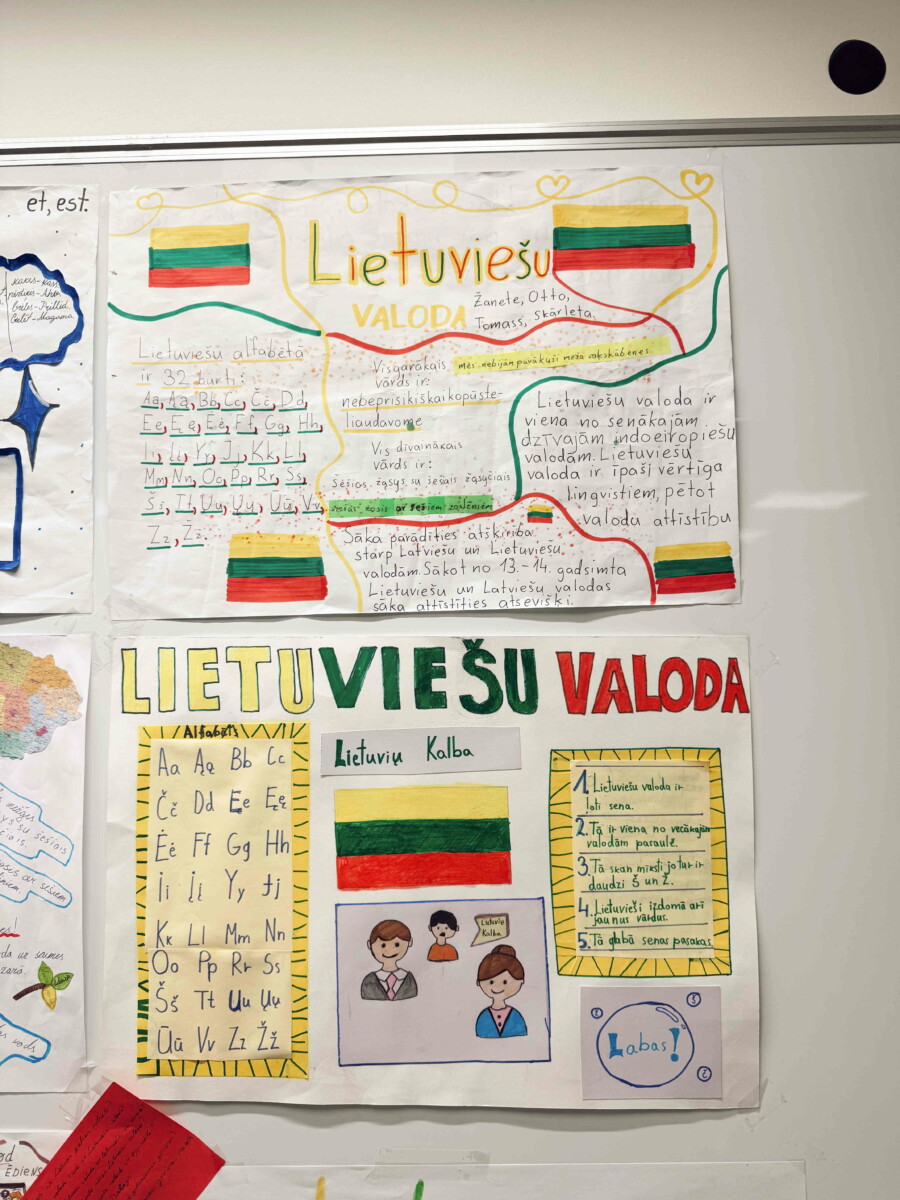 et, est.
Lietuviešu
VALODA
Žanete, Otto,
Tomass, Skārleta.
Lietuviešu alfabētā
ir 32 burti:
Aa, Ąą, Bb, Cc, Čč, Dd,
Ee, Ęę, Ėė, Ff, Gg, Hh,
Ii, Įį, Yy, Jj, Kk, Ll,
Mm, Nn, Oo, Pp, Rr, Ss,
Šš, Tt, Uu, Ųų, Ūū, Vv,
Zz, Žž.
Visgarākais
vārds ir:
nebeprisikiškiakopūste-
liaudavome
mēs nebijām pārākuši meža
Vis dīvainākais
vārds ir:
Šešios žąsys su šešiais žąsyčiais
sešas zosis ar sešiem zoslēniem
Lietuviešu valoda ir
viena no senākajām
dzīvajām indoeiropiešu
valodām. Lietuviešu
valoda ir īpaši vērtīga
lingvistiem, pētot
valodu attīstību
Sāka parādīties atšķirība
starp Latviešu un Lietuviešu
valodām. Sākot no 13.-14. gadsimta
Lietuviešu un Latviešu valodas
sāka attīstīties atsevišķi.
LIETUVIEŠU VALODA
Alfabēts
Aa Ąą Bb Cc
Čč Dd Ee Ęę
Ėė Ff Gg Hh
Ii Įį Yy Jj
Kk Ll Mm Nn
Oo Pp Rr Ss
Šš Tt Uu Ųų
Ūū Vv Zz Žž
Lietuvių Kalba
Lietuvių
Kalba
1. Lietuviešu valoda ir
ļoti sena.
2. Tā ir viena no vecākajām
valodām pasaulē.
3. Tā skan mīksti jo tur ir
daudzi Š un Ž.
4. Lietuvieši izdomā arī
jaunus vārdus.
5. Tā glabā senas pasakas
Labas!
ĒDIENS